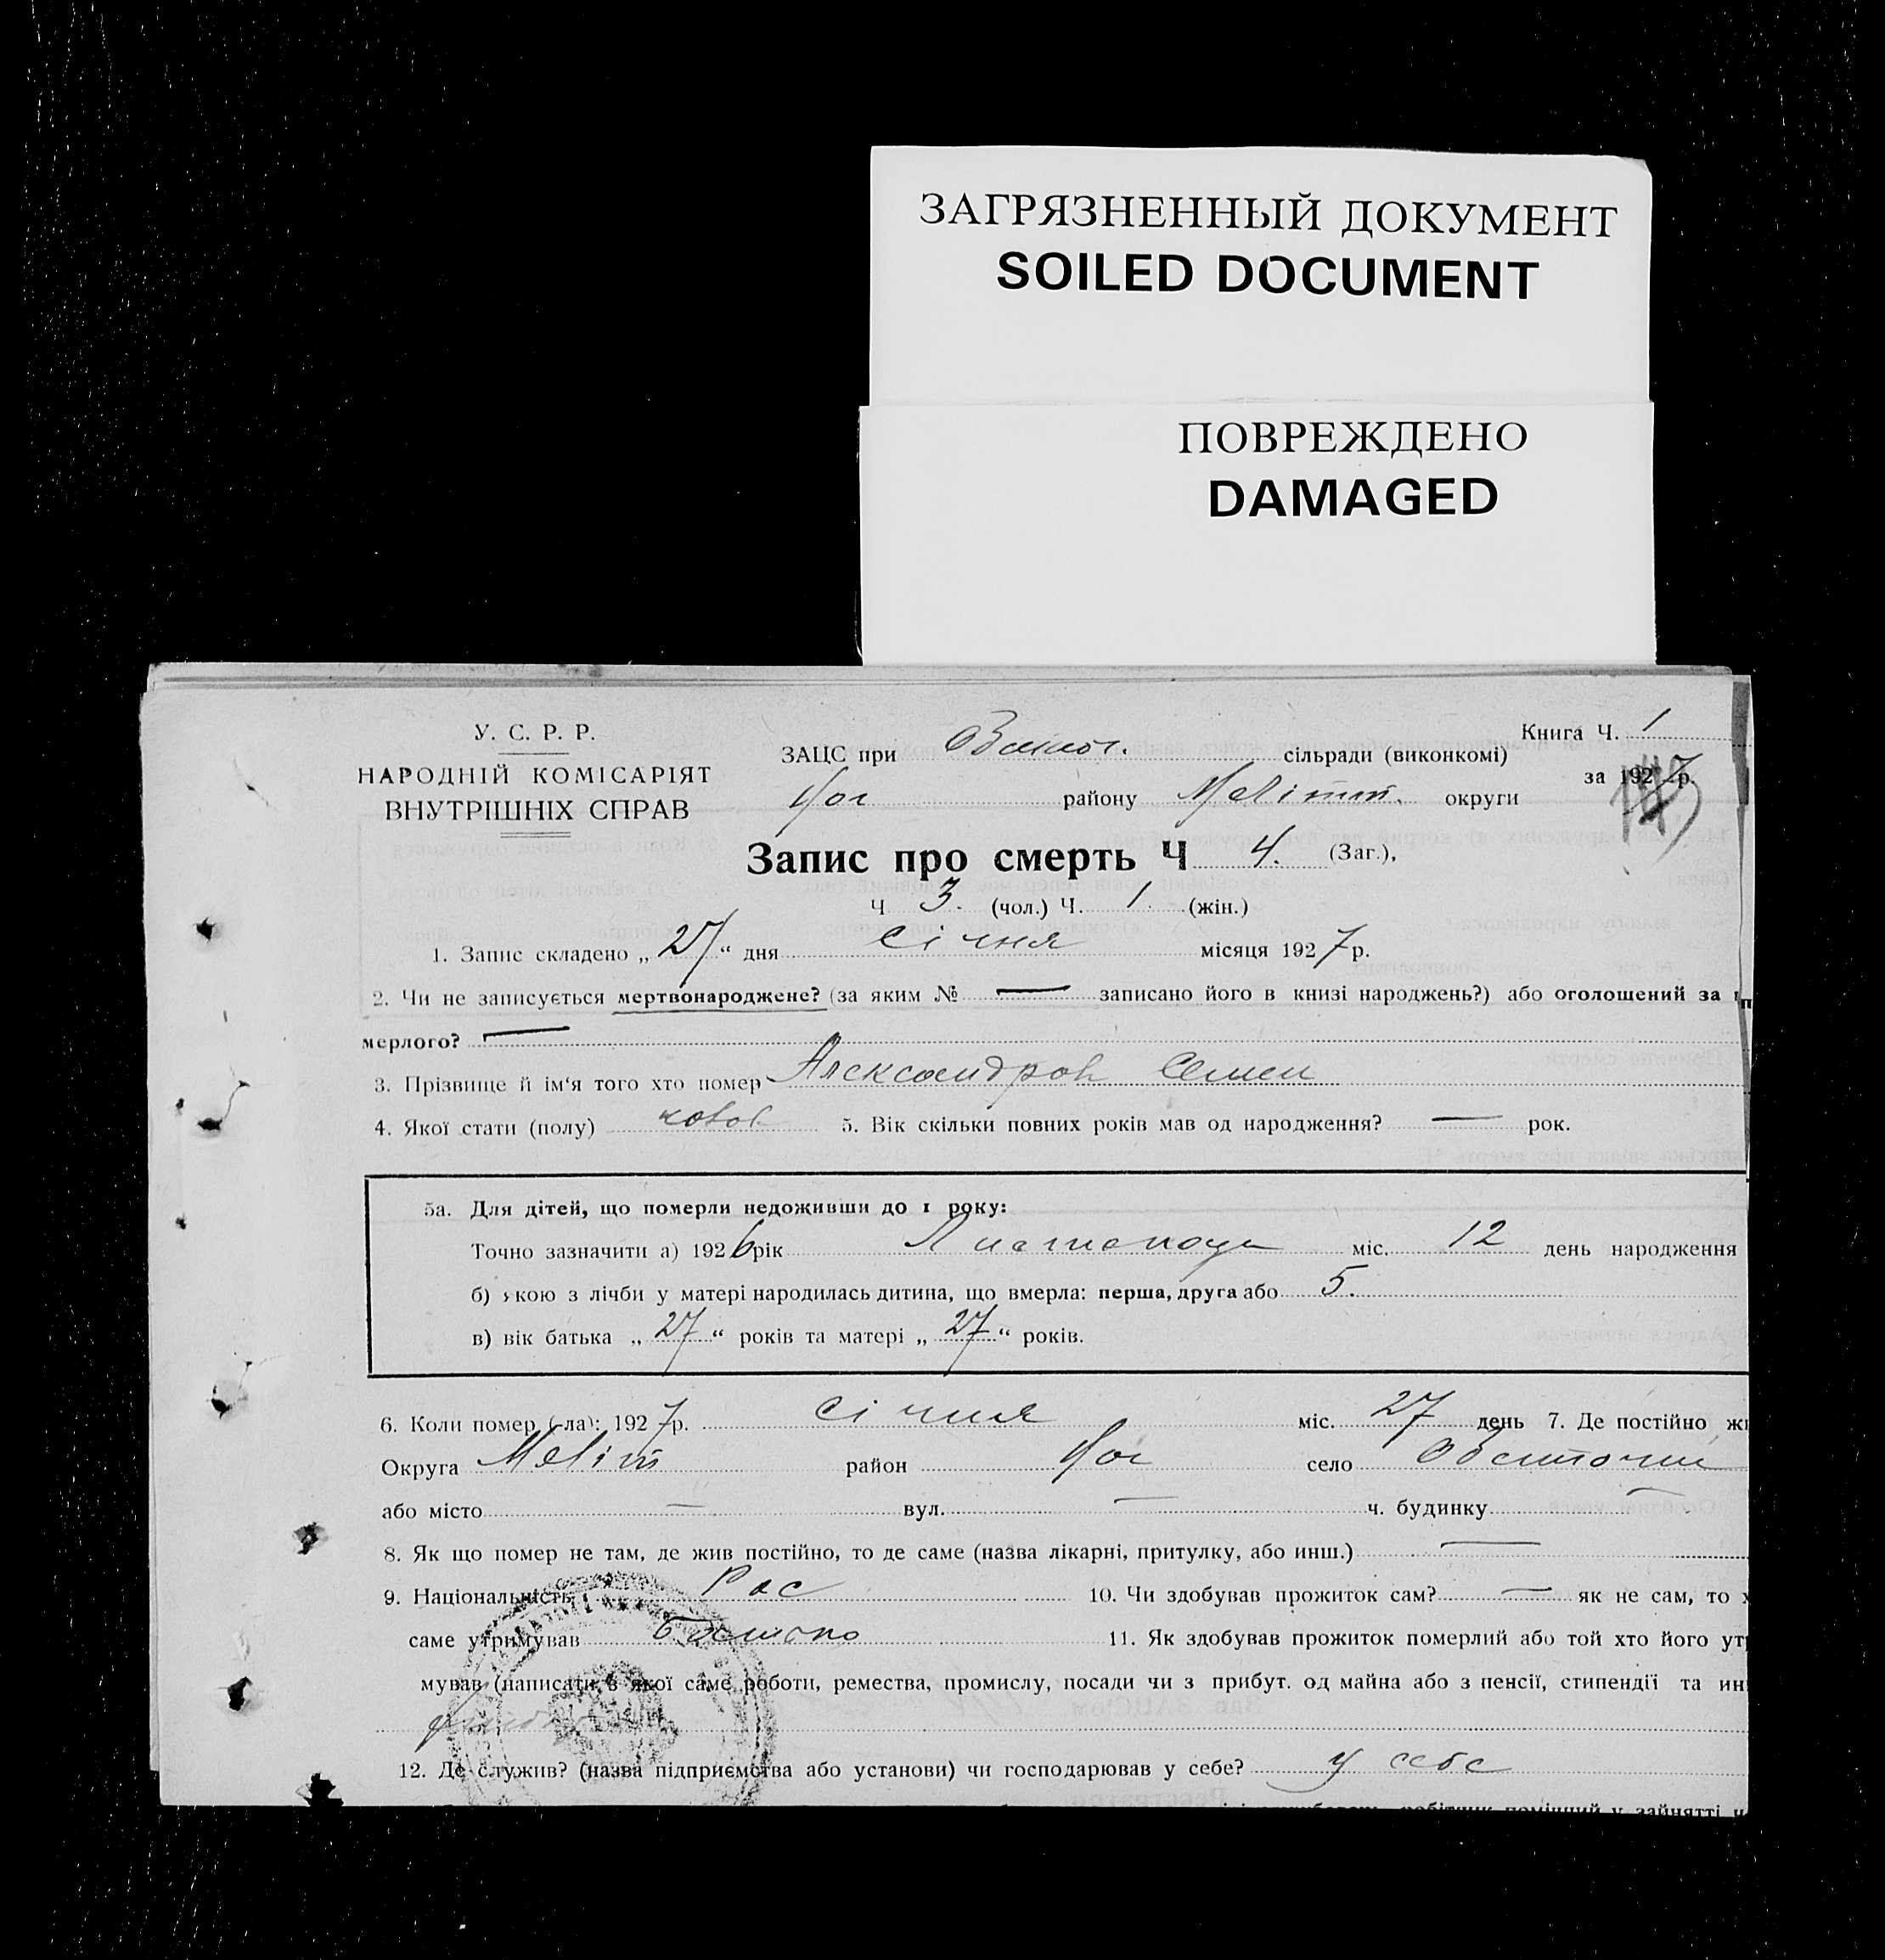 ЗАГРЯЗНЕННЫЙ ДОКУМЕНТ
SOILED DOCUMENT
ПОВРЕЖДЕНО
DAMAGED
У. С. Р. Р.
НАРОДНІЙ КОМІСАРІЯТ
ВНУТРІШНІХ СПРАВ
Книга Ч. 1
за 1927 р.
ЗАЦС при сільради (виконкомі)
Ног району Меліт. округи
Запис про смерть Ч 4. (Заг.),
Ч 3. (чол.) Ч. 1. (жін.)
1. Запис складено „27“ дня січня місяця 1927 р.
2. Чи не записується мертвонароджене? (за яким № — записано його в книзі народжень?) або оголошений за
мерлого? —
3. Прізвище й ім‘я того хто помер Александров Семен
4. Якої стати (полу) чолов 5. Вік скільки повних років мав од народження? — рок.
5а. Для дітей, що померли недоживши до 1 року:
Точно зазначити а) 1926 рік Листопода міс. 12 день народження
б) якою з лічби у матері народилась дитина, що вмерла: перша, друга або 5.
в) вік батька „27“ років та матері „27“ років.
6. Коли помер (-ла): 1927 р. січня міс. 27 день 7. Де постійно жи
Округа Меліт район Ног село Обиточни
або місто — вул. — ч. будинку —
8. Як що помер не там, де жив постійно, то де саме (назва лікарні, притулку, або инш.) —
9. Національність Рос 10. Чи здобував прожиток сам? — як не сам, то х
саме утримував Батько 11. Як здобував прожиток померлий або той хто його ут
мував (написати з якої саме роботи, ремества, промислу, посади чи з прибут. од майна або з пенсії, стипендії та ин
12. Де служив? (назва підприємства або установи) чи господарював у себе? у себе
робітник помічний у зайнятті